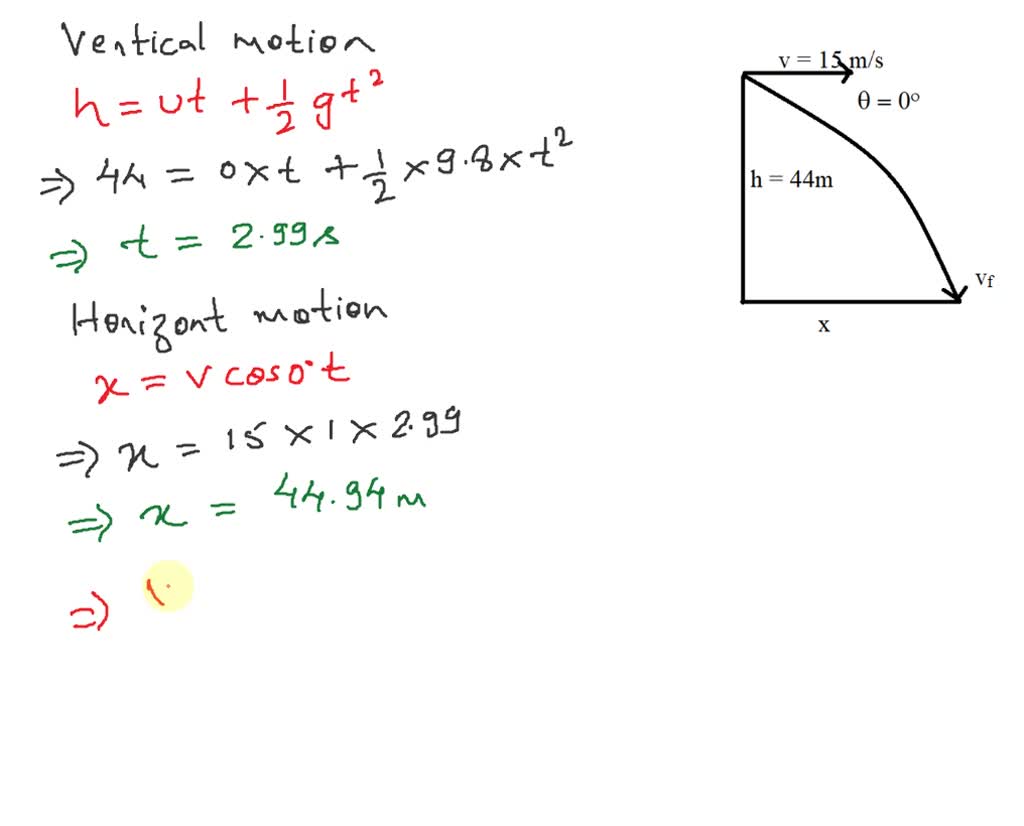 Vertical motion
h = ut + 1/2 gt²
⇒ 44 = 0×t + 1/2 × 9.8 × t²
⇒ t = 2.99s
Horizont motion
x = v cos0° t
⇒ x = 15 × 1 × 2.99
⇒ x = 44.94m
⇒
v = 15 m/s
θ = 0°
h = 44m
vf
x